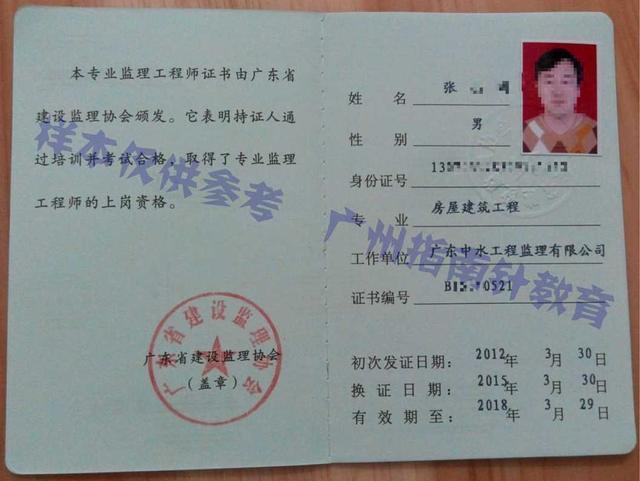 本专业监理工程师证书由广东省
建设监理协会颁发。它表明持证人通
过培训并考试合格，取得了专业监理
工程师的上岗资格。
样本仅供参考
广东省建设监理协会
广东省建设监理协会
（盖章）
姓 名 张
性 别 男
身份证号 13
专 业 房屋建筑工程
工作单位 广东中水工程监理有限公司
证书编号 B 0521
广州指南针教育
初次发证日期： 2012年 3月 30日
换 证 日 期： 2015年 3月 30日
有 效 期 至： 2018年 3月 29日